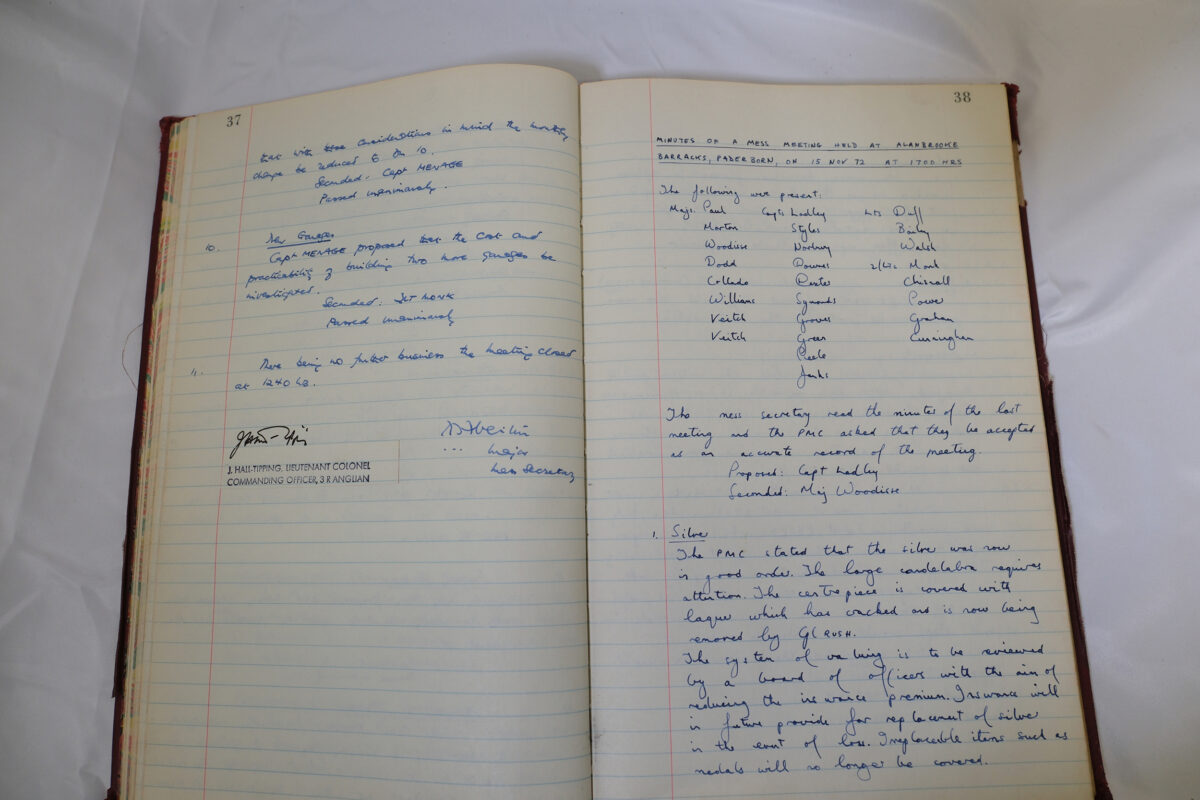 37
that with these considerations in mind the monthly
charge be reduced to DM 10.
Seconded: Capt MENAGE
Passed unanimously.
10. New Garages
Capt MENAGE proposed that the cost and
practicability of building two more garages be
investigated.
Seconded: 2Lt MONK
Passed unanimously
11. There being no further business the meeting closed
at 1240 hrs.
J. HALL-TIPPING, LIEUTENANT COLONEL
COMMANDING OFFICER, 3 R ANGLIAN
Major
Mess Secretary
38
MINUTES OF A MESS MEETING HELD AT ALANBROOKE
BARRACKS, PADERBORN, ON 15 NOV 72 AT 1700 HRS
The following were present:
Majs. Paul Capts Ladley Lts Duff
Morton Styles Bailey
Woodisse Norbury Walsh
Dodd Downes 2/Lts Monk
Collado Chisnall
Williams Symonds Power
Veitch Groves Graham
Veitch Green Cunningham
Peele
Jenks
The mess secretary read the minutes of the last
meeting and the PMC asked that they be accepted
as an accurate record of the meeting.
Proposed: Capt Ladley
Seconded: Maj Woodisse
1. Silver
The PMC stated that the silver was now
in good order. The large candelabra requires
attention. The centrepiece is covered with
laquer which has cracked and is now being
removed by
The system of valuing is to be reviewed
by a board of officers with the aim of
reducing the insurance premium. Insurance will
in future provide for replacement of silver
in the event of loss. Irreplaceable items such as
medals will no longer be covered.